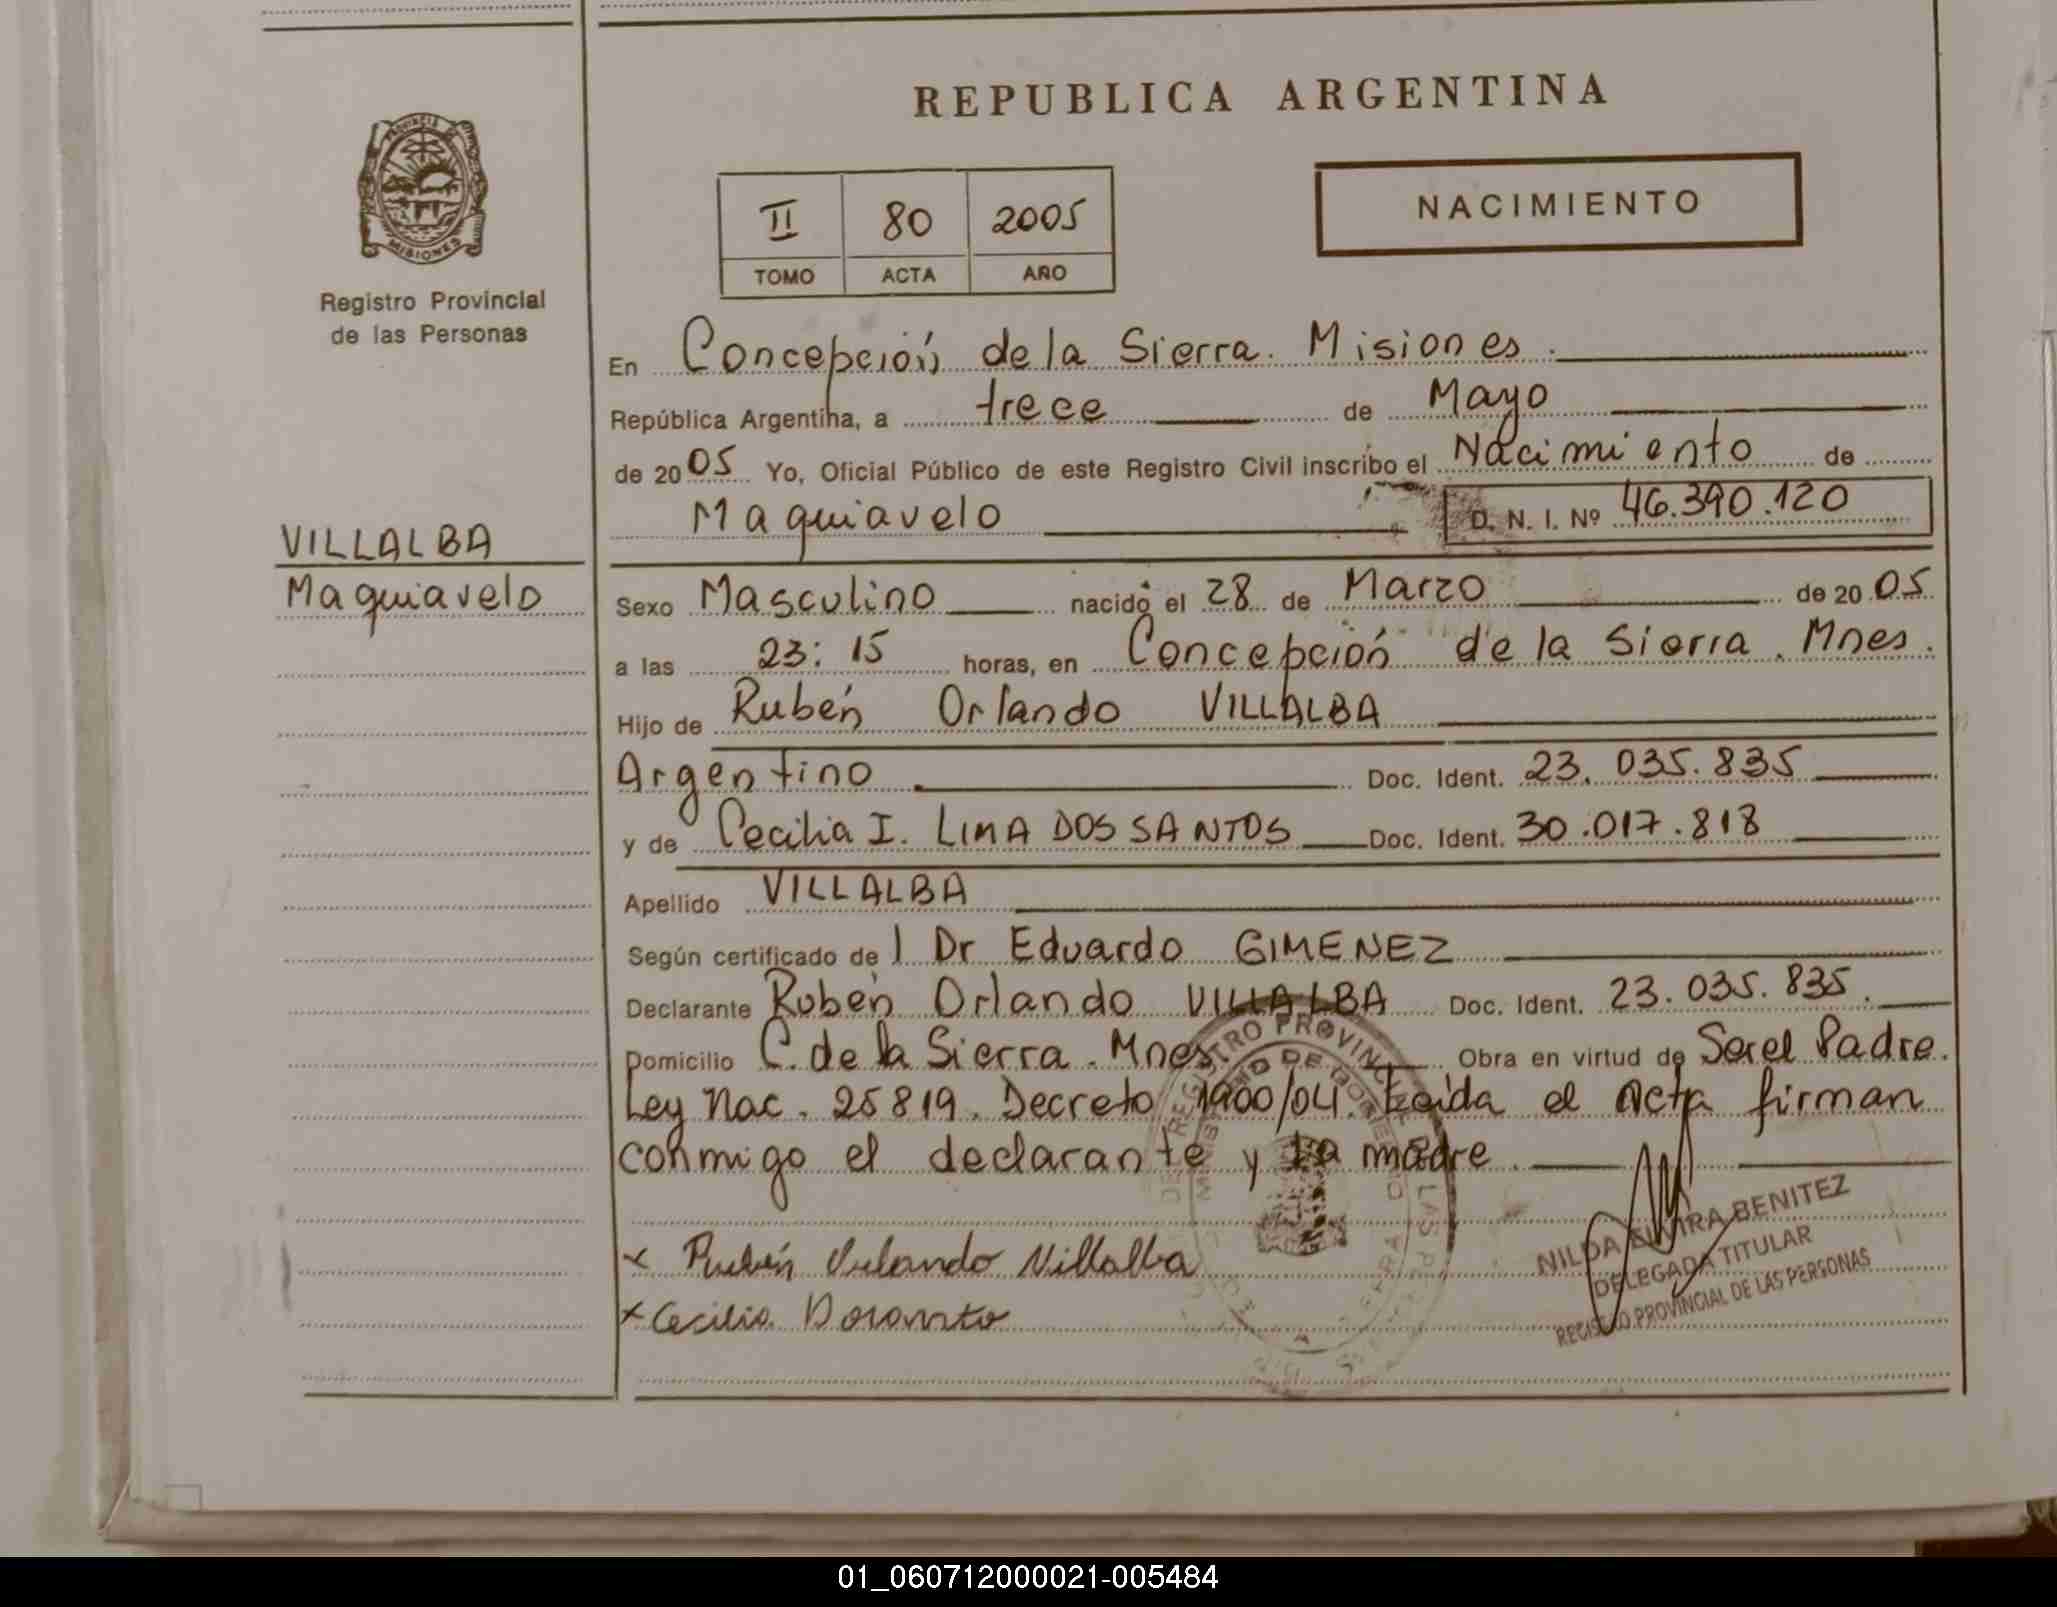 REPUBLICA ARGENTINA
PROVINCIA DE
MISIONES
Registro Provincial
de las Personas
II 80 2005
TOMO ACTA AÑO
NACIMIENTO
En Concepción de la Sierra. Misiones.
República Argentina, a trece de Mayo
de 2005 Yo, Oficial Público de este Registro Civil inscribo el Nacimiento de
Maquiavelo D. N. I. Nº 46.390.120
VILLALBA
Maquiavelo
Sexo Masculino nacido el 28 de Marzo de 2005
a las 23:15 horas, en Concepción de la Sierra. Mnes.
Hijo de Rubén Orlando VILLALBA
Argentino Doc. Ident. 23.035.835
y de Cecilia I. LIMA DOS SANTOS Doc. Ident. 30.017.818
Apellido VILLALBA
Según certificado de l Dr Eduardo GIMENEZ
Declarante Rubén Orlando VILLALBA Doc. Ident. 23.035.835.
Domicilio C. de la Sierra. Mnes. Obra en virtud de Ser el Padre.
Ley Nac. 25819. Decreto 1900/04. Leída el Acta firman
conmigo el declarante y la madre.
x Rubén Orlando Villalba
x Cecilia
NILDA ELVIRA BENITEZ
DELEGADA TITULAR
REGISTRO PROVINCIAL DE LAS PERSONAS
01_060712000021-005484